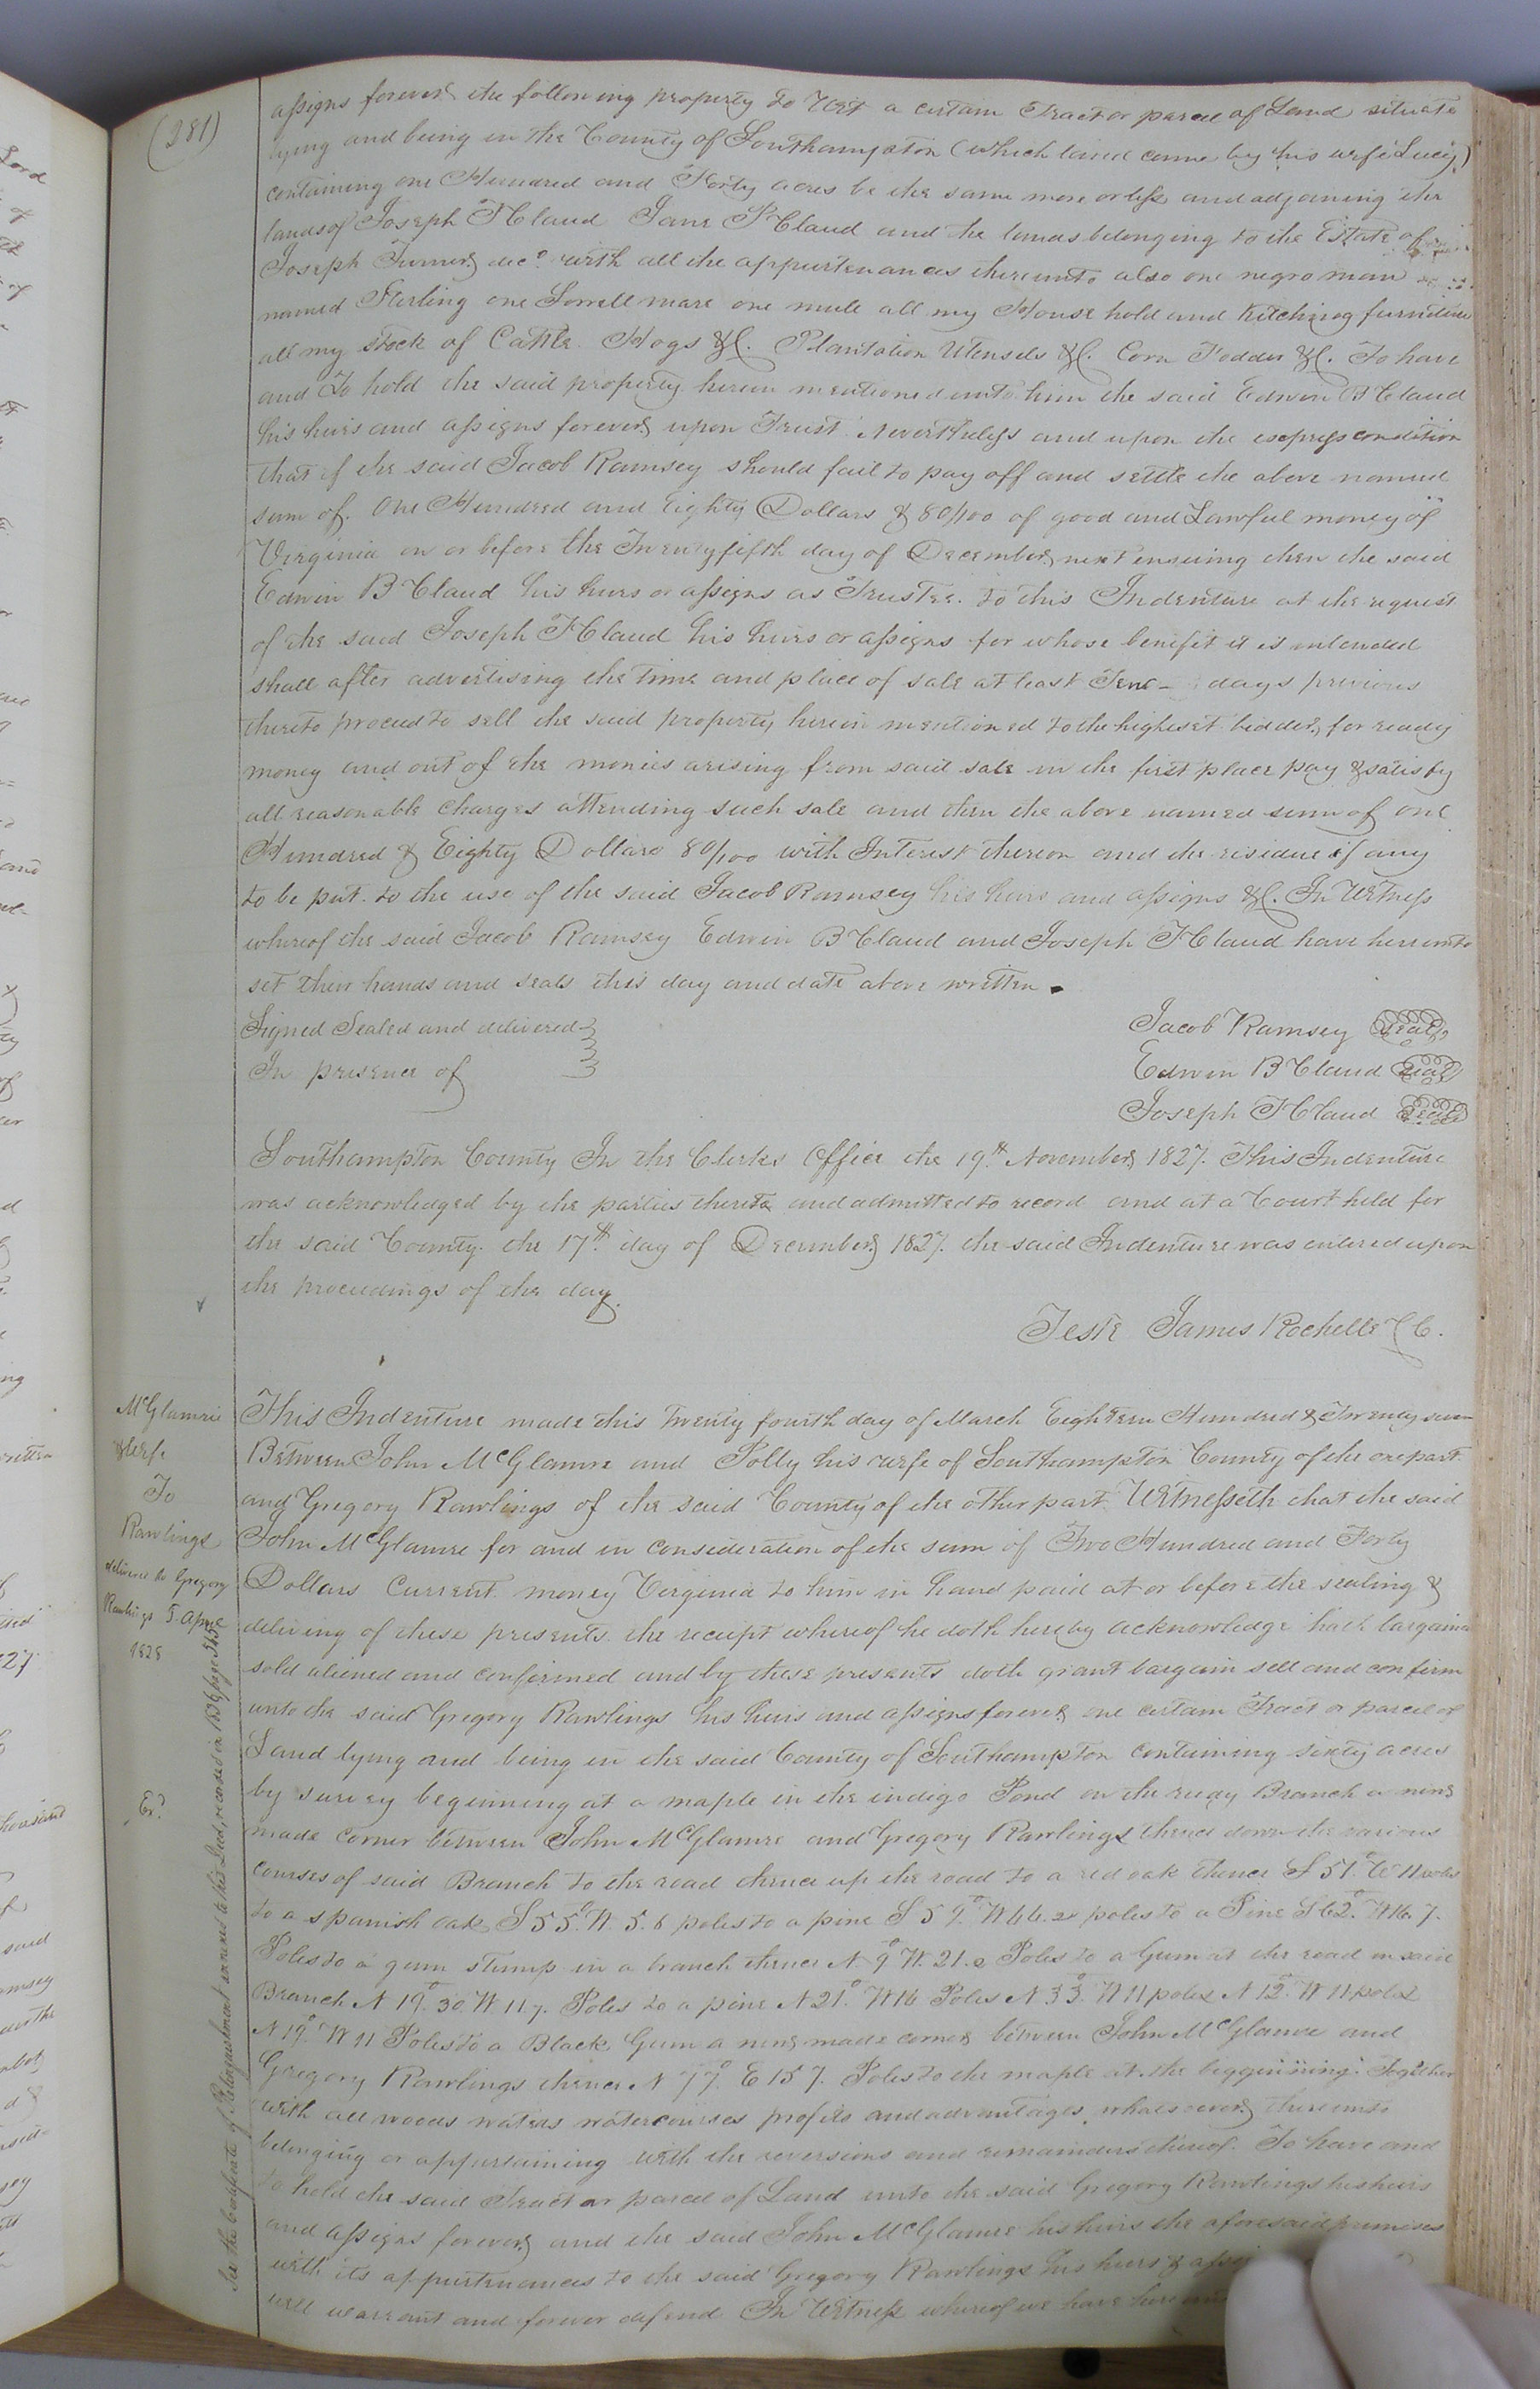 (281)
assigns forever the following property to Wit a certain Tract or parcel of Land situate
lying and being in the County of Southampton (which land came by his wife Lucy)
containing one Hundred and Forty acres be the same more or less and adjoining the
lands of Joseph T Claud Jane P Claud and the lands belonging to the Estate of
Joseph Turner decd. with all the appurtenances thereunto also one negro man
named Sterling one Sorrell mare one mule all my House hold and Kitching furniture
all my stock of Cattle. Hogs &C. Plantation Utensels &C. Corn Fodder &C. To have
and To hold the said property herein mentioned unto him the said Edwin B Claud
his heirs and assigns forever upon Trust Nevertheless and upon the express condition
that if the said Jacob Ramsey should fail to pay off and settle the above named
sum of. One Hundred and Eighty Dollars & 80/100 of good and Lawful money of
Virginia on or before the Twenty fifth day of December next ensuing then the said
Edwin B Claud his heirs or assigns as Trustee. to this Indenture at the request
of the said Joseph T Claud his heirs or assigns for whose benefit it is intended
shall after advertising the time and place of sale at least Tenn - days previous
thereto proceed to sell the said property herein mentioned to the highest bidder for ready
money and out of the monies arising from said sale in the first place pay & satisfy
all reasonable charges attending such sale and then the above named sum of one
Hundred & Eighty Dollars 80/100 with Interest thereon and the residue if any
to be put to the use of the said Jacob Ramsey his heirs and assigns &C. In Witness
whereof the said Jacob Ramsey Edwin B Claud and Joseph T Claud have hereunto
set their hands and seals this day and date above written.
Signed Sealed and delivered
In presence of
Jacob Ramsey Seal
Edwin B Claud Seal
Joseph T Claud Seal
Southampton County In the Clerks Office the 19th November 1827. This Indenture
was acknowledged by the parties thereto and admitted to record and at a Court held for
the said County the 17th day of December 1827. the said Indenture was entered upon
the proceedings of the day.
Teste James Rochelle CC.
McGlamre
& Wife
To
Rawlings
delivered to Gregory
Rawlings 5 April
1828
Exd.
This Indenture made this Twenty fourth day of March Eighteen Hundred & Twenty seven
Between John McGlamre and Polly his wife of Southampton County of the one part
and Gregory Rawlings of the said County of the other part Witnesseth that the said
John McGlamre for and in consideration of the sum of Two Hundred and Forty
Dollars Current money Virginia to him in hand paid at or before the sealing &
delivring of these presents the receipt whereof he doth hereby acknowledge hath bargaind
sold aliened and confirmed and by these presents doth grant bargain sell and confirm
unto the said Gregory Rawlings his heirs and assigns forever one certain Tract or parcel of
Land lying and being in the said County of Southampton containing sixty acres
by survey beginning at a maple in the indigo Pond on the reedy Branch a new
made corner between John McGlamre and Gregory Rawlings thence down the various
courses of said Branch to the road thence up the road to a red oak thence S 51° W 11 poles
to a spanish oak S 55° W. 5.6 poles to a pine S 59° W 66.2 poles to a Pine S 62° W 16.7.
Poles to a gum stump in a branch thence N. 9° W. 21.2 Poles to a Gum at the road in said
Branch N 19° 30 W 11 7. Poles to a pine N 21° W 16 Poles N 33° W 11 poles N 12° W 11 poles
N 19° W 11 Poles to a Black Gum a new made corner between John McGlamre and
Gregory Rawlings thence N 77° E 157. Poles to the maple at the beggining. Together
with all woods waters watercourses profits and advantages whatsoever thereunto
belonging or appertaining with the reversions and remainders thereof. To have and
to hold the said Tract or parcel of Land unto the said Gregory Rawlings his heirs
and assigns forever and the said John McGlamre his heirs the aforesaid premises
with its appurtenances to the said Gregory Rawlings his heirs &
will warrant and forever defend In Witness whereof we have
See the Certificate of Relinquishment annexed to this Deed, recorded in